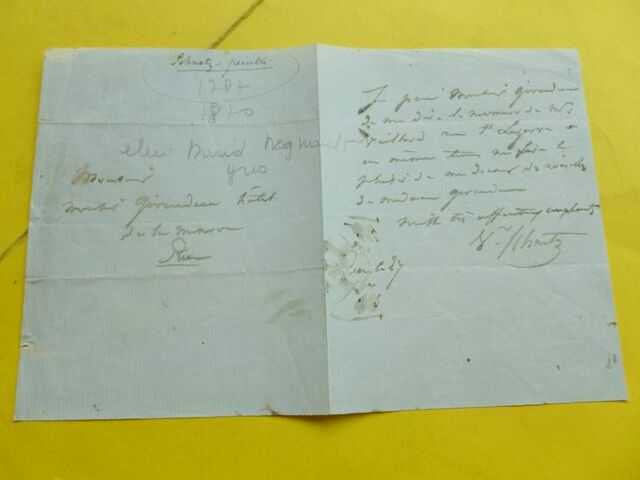 Schnetz - peintre
1787
1870
eleve David Regnault
gros
Monsieur
Monsieur Girandeau hôtel
de la
Je prie Monsieur Girandeau
de me dire le numero de Mr
rue St Lazare &
en même tems me faire le
plaisir de me donner de nouvelles
de madame Girandeau
mille très affectueux compliments
Vr Schnetz
ce 27